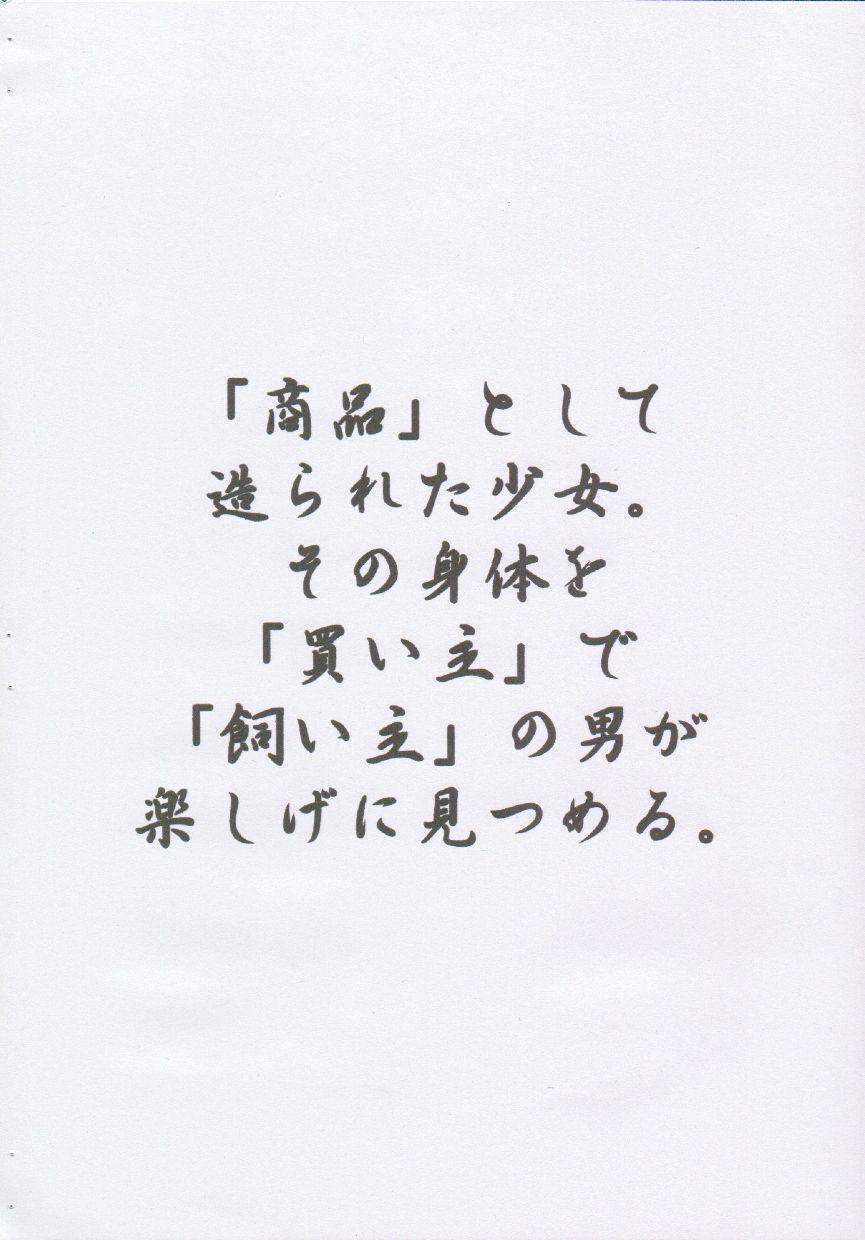 「商品」として
造られた少女。
その身体を
「買い主」で
「飼い主」の男が
楽しげに見つめる。